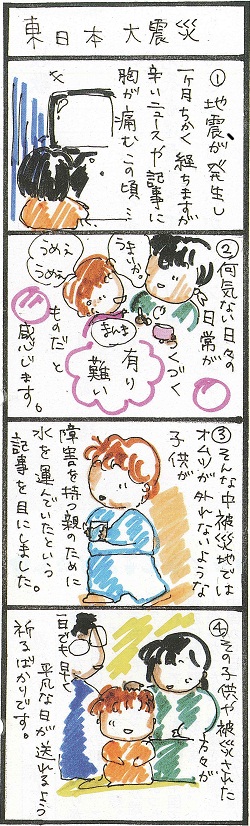 東日本大震災
①地震が発生し
一ヶ月ちかく経ちますが
辛いニュースや記事に
胸が痛むこの頃…
②何気ない日々の
日常が
つくづく
有り
難い
ものだと
感じます。
うまいか。
まんま
うめぇ
うめぇ
③そんな中被災地では
オムツが外れないような
子供が
障害を持つ親のために
水を運んでいたという
記事を目にしました。
④その子供や被災された
方々が
一日でも早く
平気な日が送れるよう
祈るばかりです。